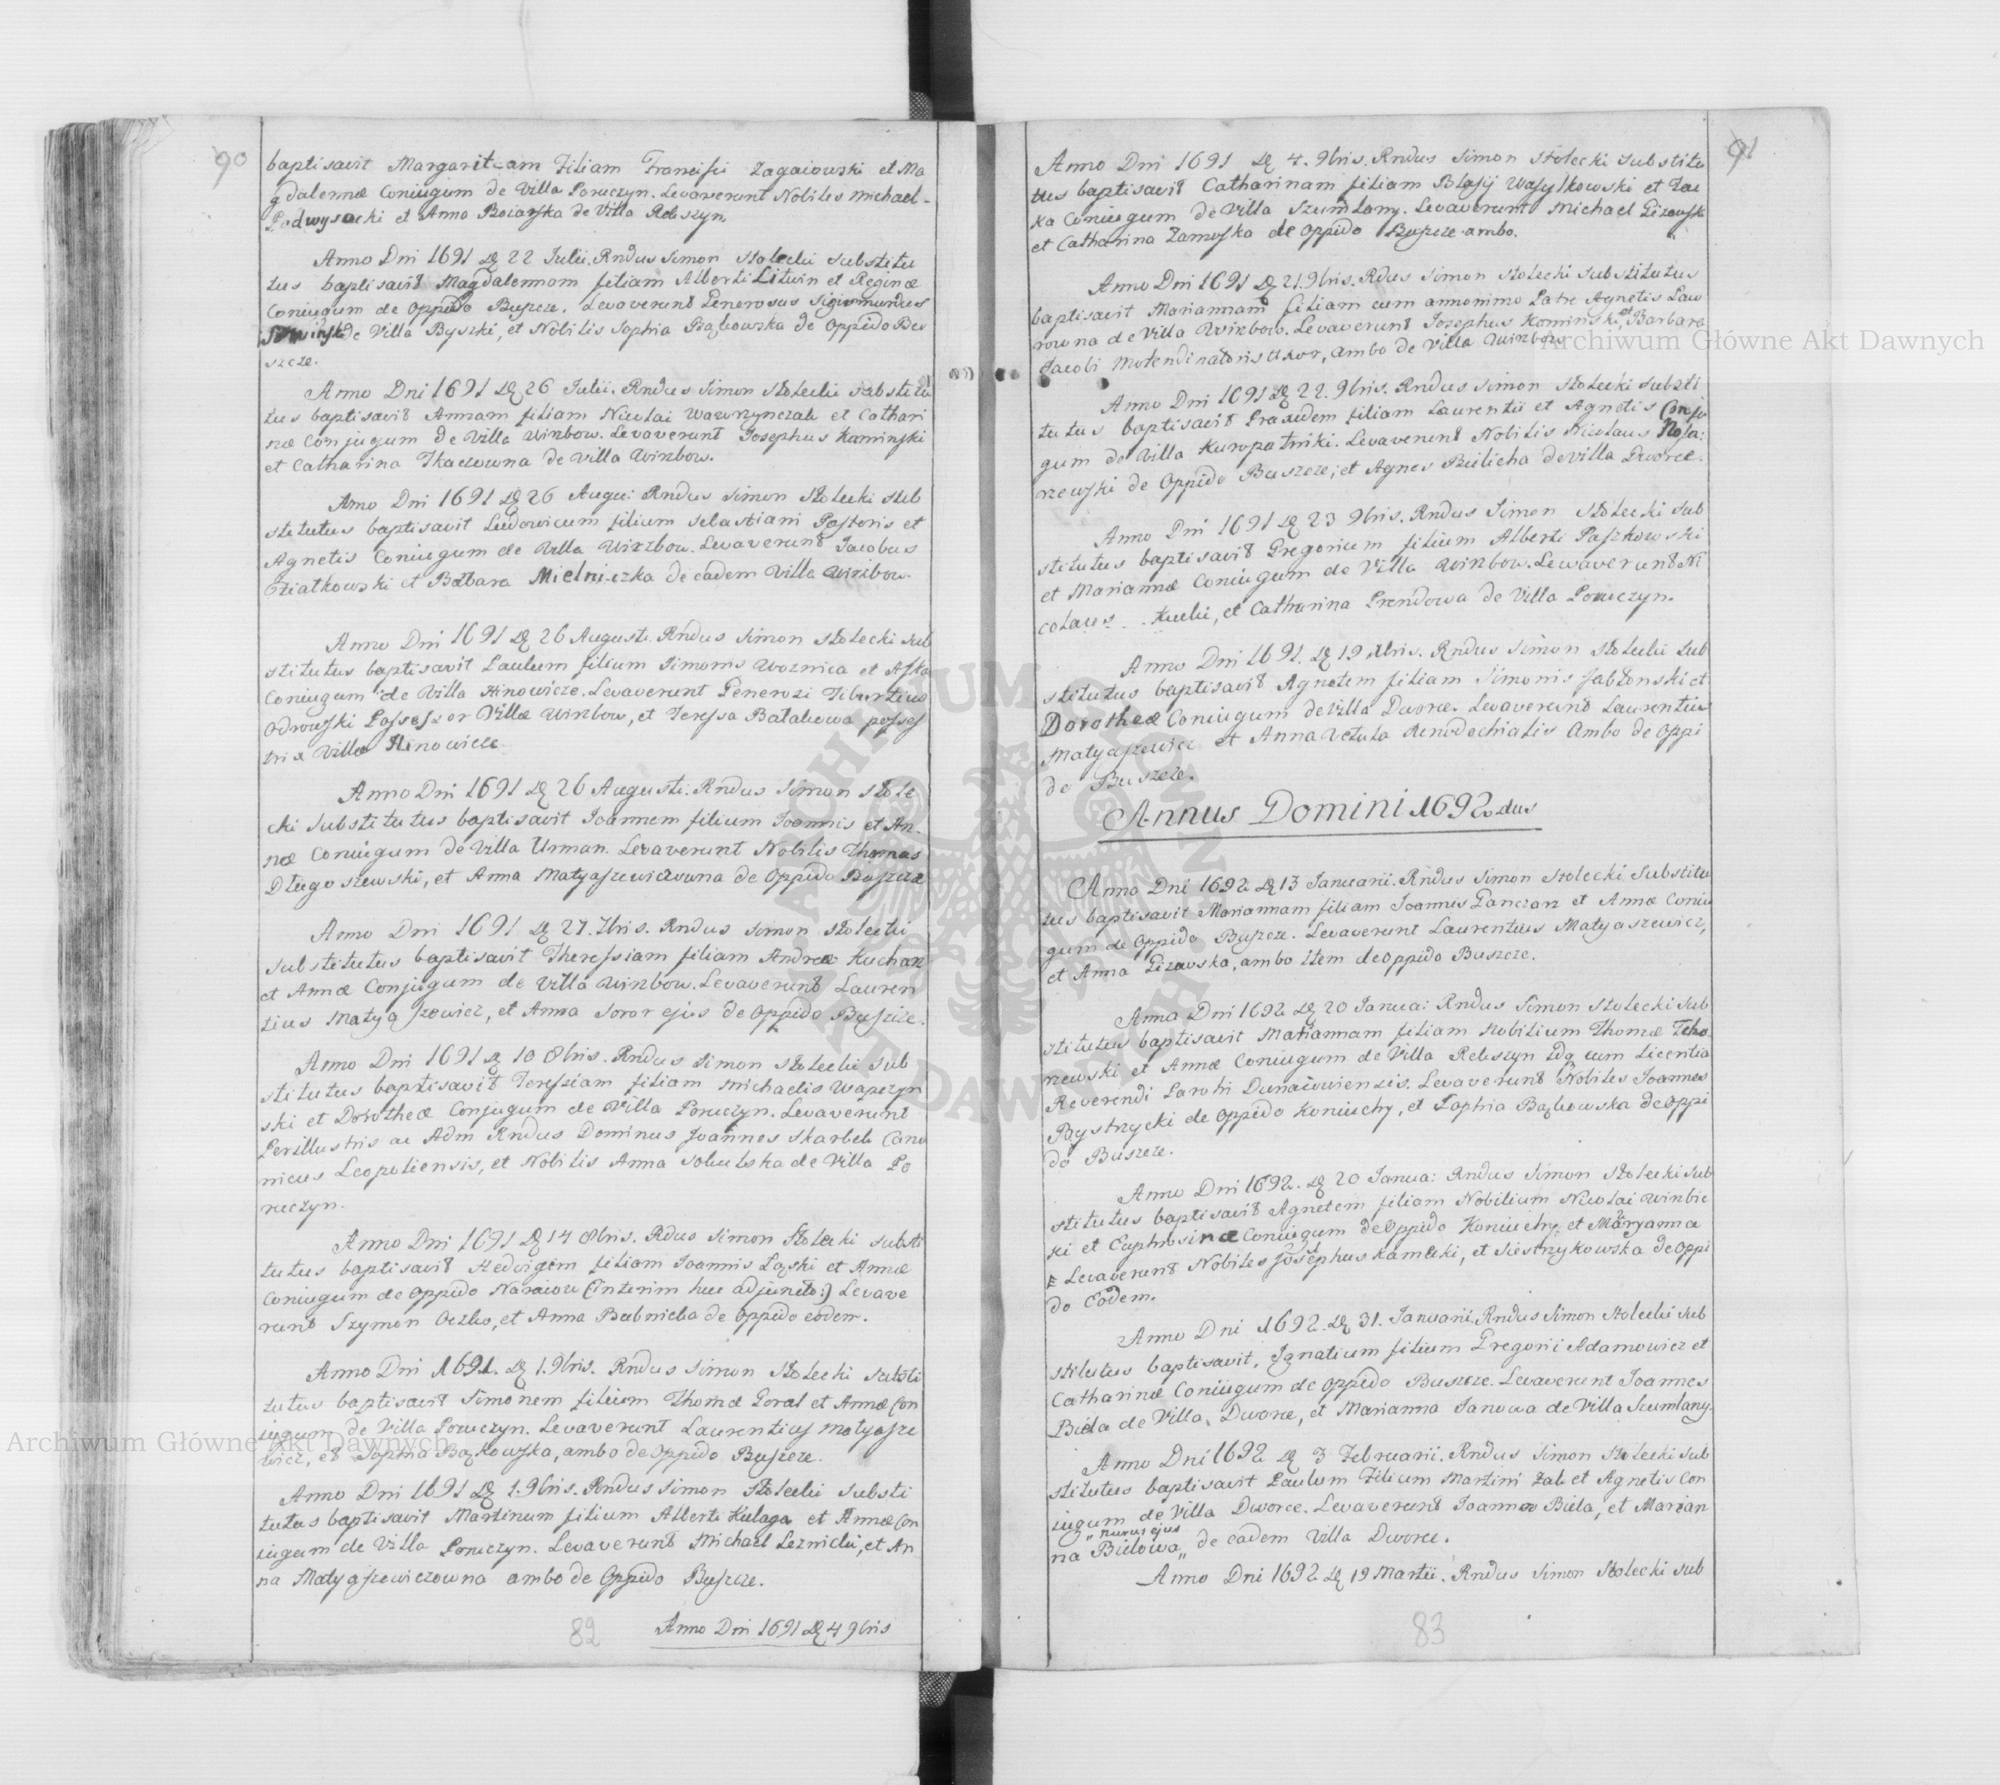 90
baptisavit Margarit-am Filiam Francisci Zagaiowski et Ma
gdalennæ Coniugum de Villa Poruczyn. Levaverunt Nobiles Michael
Podwysocki et Anna Boiarska de Villa Rekszyn.
Anno Dni 1691 De 22 Julii. Rndus Simon Stolecki Substitu
tus baptisavit Magdalennam filiam Alberti Litwin et Reginæ
Coniugum de Oppido Buszcze. Levaverunt Generosus Sigismundus
de Villa Byszki, et Nobilis Sophia Bąkowska de Oppido Bu
szcze.
Anno Dni 1691 De 26 Julii. Rndus Simon Stolecki Substitu
tus baptisavit Annam filiam Nicolai Wawrzynczak et Cathari
næ Conjugum de Villa Wirzbow. Levaverunt Josephus Kaminski
et Catharina Tkaczowna de Villa Wirzbow.
Anno Dni 1691 De 26 Augu: Rndus Simon Stolecki Sub
stitutus baptisavit Ludovicum filium Sebastiani Pastoris et
Agnetis Coniugum de Villa Wirzbow. Levaverunt Jacobus
Piatkowski et Barbara Mielniczka de eadem Villa Wirzbow.
Anno Dni 1691 De 26 Augusti. Rndus Simon Stolecki Sub
stitutus baptisavit Paulum filium Simonis Woznica et Aska
Coniugum de Villa Hinowicze. Levaverunt Generosi Tiburtius
Odrowski Possessor Villæ Wirzbow, et Teressa Batakowa posses
trix Villæ Hinowicze.
Anno Dni 1691 De 26 Augusti. Rndus Simon Stole
cki Substitutus baptisavit Joannem filium Joannis et An-
næ Coniugum de Villa Urman. Levaverunt Nobilis Thomas
Długoszewski, et Anna Matyaszewiczowna de Oppido Buszcze
Anno Dni 1691 De 27. 7bris. Rndus Simon Stolecki
Substitutus baptisavit Theressiam filiam Andreæ Kucharz
et Annæ Conjugum de Villa Wirzbow. Levaverunt Lauren
tius Matyaszewicz, et Anna Soror ejus de Oppido Buszcze.
Anno Dni 1691 De 10 8bris. Rndus Simon Stolecki Sub
stitutus baptisavit Teressiam filiam Michaelis Wapczyn
ski et Dorotheæ Conjugum de Villa Poruczyn. Levaverunt
Perillustris ac Adm Rndus Dominus Joannes Skarbek Cano
nicus Leopoliensis, et Nobilis Anna Sokulska de Villa Po
ruczyn.
Anno Dni 1691 De 14 8bris. Rdus Simon Stolecki Substi
tutus baptisavit Hedvigem filiam Joannis Łąski et Annæ
Coniugum de Oppido Naraiow (interim huc adjuncto:) Levave
runt Szymon Oczko, et Anna Bubnicka de Oppido eodem.
Anno Dni 1691. De 1. 9bris. Rndus Simon Stolecki Substi
tutus baptisavit Simonem filium Thomæ Goral et Annæ Con
iugum de Villa Poruczyn. Levaverunt Laurentius Matyasze
wicz, et Sophia Bąkowska, ambo de Oppido Buszcze.
Anno Dni 1691 De 1. 9bris. Rndus Simon Stolecki Substi
tutus baptisavit Martinum filium Alberti Kulaga et Annæ Con
iugum de Villa Poruczyn. Levaverunt Michael Leznicki, et An
na Matyaszewiczowna ambo de Oppido Buszcze.
Anno Dni 1691 De 4 9bris
82
91
Anno Dni 1691 De 4. 9bris. Rndus Simon Stolecki Substitu
tus baptisavit Catharinam filiam Blasij Wasylkowski et
ka Coniugum de Villa Szumlany. Levaverunt Michael Gizowsk
et Catharina Zamoyska de Oppido Buszcze ambo.
Anno Dni 1691 De 21. 9bris. Rdus Simon Stolecki Substitutus
baptisavit Mariannam filiam cum annonimo Patre Agnetis Law
rowna de Villa Wirzbow. Levaverunt Josephus Kominski, et Barbara
Jacobi Molendinatoris Uxor, ambo de Villa Wirzbow
Anno Dni 1691 De 22. 9bris. Rndus Simon Stolecki Substi
tutus baptisavit Praxidem filiam Laurentii et Agnetis Conju
gum de Villa Kuropatniki. Levaverunt Nobilis Nicolaus
rzewski de Oppido Buszcze, et Agnes Bielicha de Villa Dworce.
Anno Dni 1691 De 23 9bris. Rndus Simon Stolecki Sub
stitutus baptisavit Gregorium filium Alberti Paszkowski
et Mariannæ Coniugum de Villa Wirzbow. Levaverunt Ni
colaus Kucki, et Catharina Prendowa de Villa Poruczyn.
Anno Dni 1691. De 19 Xbris. Rndus Simon Stolecki Sub
stitutus baptisavit Agnetem filiam Simonis Jabłonski et
Dorotheæ Coniugum de Villa Dworce. Levaverunt Laurentius
Matyaszewicz et Anna Vetula Xenodochialis Ambo de Oppi
do Buszcze.
Annus Domini 1692.dus
Anno Dni 1692 De 13 Januarii. Rndus Simon Stolecki Substitu
tus baptisavit Mariannam filiam Joannis Ganczarz et Annæ Coniu
gum de Oppido Buszcze. Levaverunt Laurentius Matyaszewicz,
et Anna Gizowska, ambo Item de Oppido Buszcze.
Anno Dni 1692 De 20 Janua: Rndus Simon Stolecki Sub
stitutus baptisavit Mariannam filiam Nobilium Thomæ Tcho-
rzewski et Annæ Coniugum de Villa Rekszyn Idq cum Licentia
Reverendi Parohi Dunaiowiensis. Levaverunt Nobiles Joannes
Bystrzycki de Oppido Koniuchy, et Sophia Bąkowska de Oppi
do Buszcze.
Anno Dni 1692. De 20 Janua: Rndus Simon Stolecki Sub
stitutus baptisavit Agnetem filiam Nobilium Nicolai Wirzbic
ki et Euphrosinæ Coniugum de Oppido Koniuchy, et Maryanna
Levaverunt Nobiles Josephus Kamocki, et Siestrzykowska de Oppi
do Eodem.
Anno Dni 1692. De 31. Januarii. Rndus Simon Stolecki Sub
stitutus baptisavit, Ignatium filium Gregorii Adamowicz et
Catharinæ Coniugum de Oppido Buszcze. Levaverunt Joannes
Biela de Villa, Dworce, et Marianna Janowa de Villa Szumlany.
Anno Dni 1692 De 3 Februarii. Rndus Simon Stolecki Sub
stitutus baptisavit Paulum Filium Martini Zak et Agnetis Con
iugum de Villa Dworce. Levaverunt Joannes Biela, et Marian
„nurus ejus
na Bielowa„ de eadem Villa Dworce.
Anno Dni 1692 De 19 Martii. Rndus Simon Stolecki Sub
83
Archiwum Główne Akt Dawnych
Archiwum Główne Akt Dawnych
ARCHIWUM GŁÓWNE AKT DAWNYCH